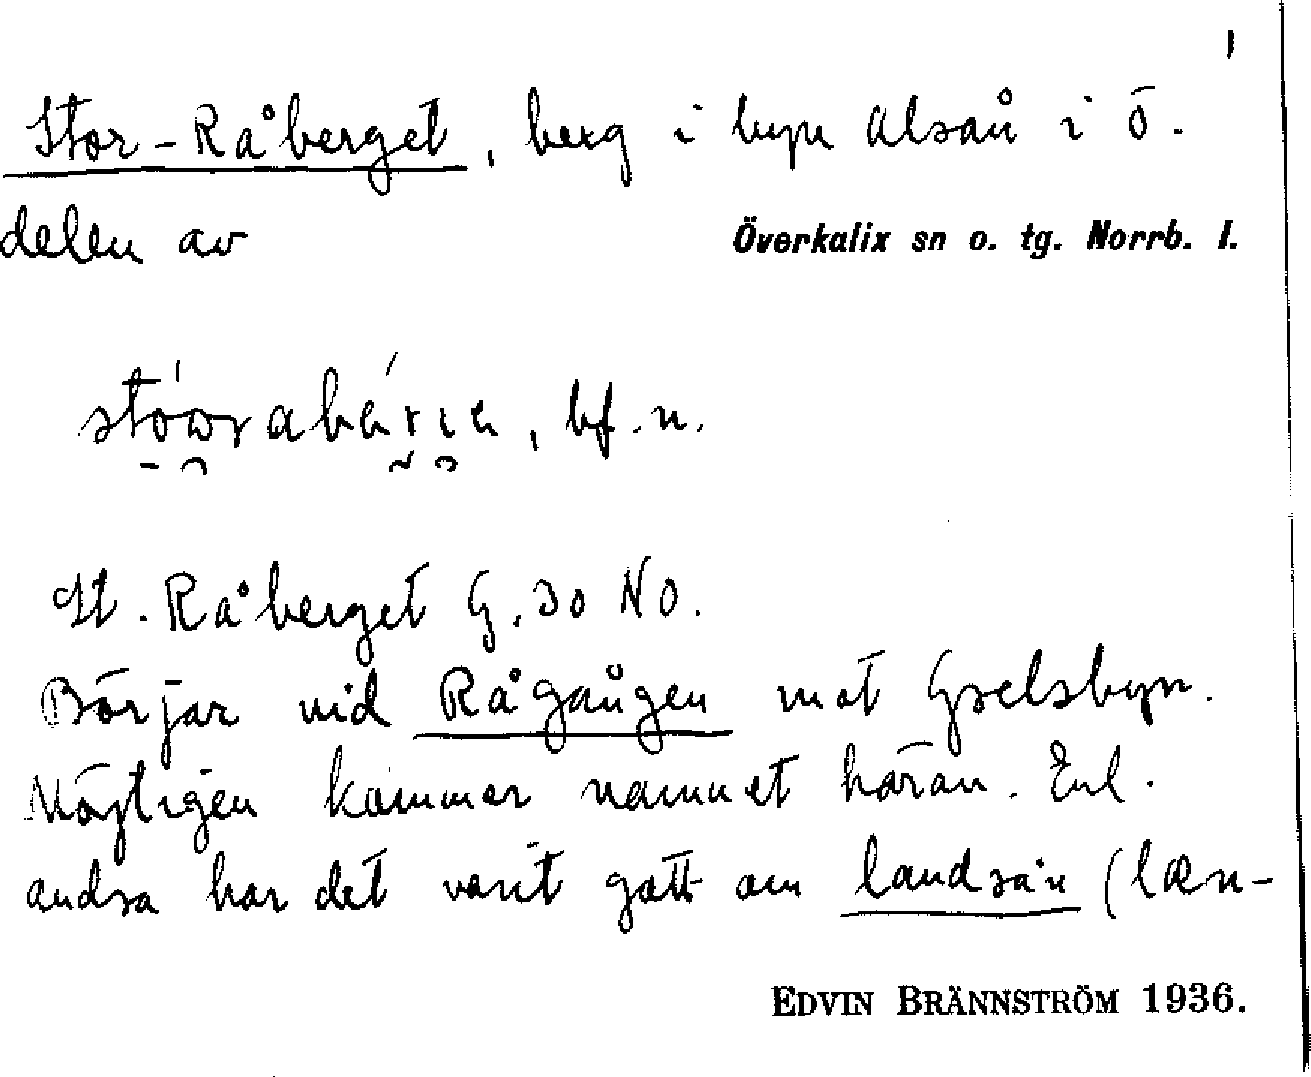 1
Stor-Råberget, berg i byn Alsån i ö.
delen av Överkalix sn o. tg. Norrb. l.
bf. n.
St. Råberget G. 30 NO.
Börjar vid Rågången mot Gyselsbyn.
Möjligen kommer namnet härav. Enl.
andra har det varit gott om landrån (læn-
EDVIN BRÄNNSTRÖM 1936.